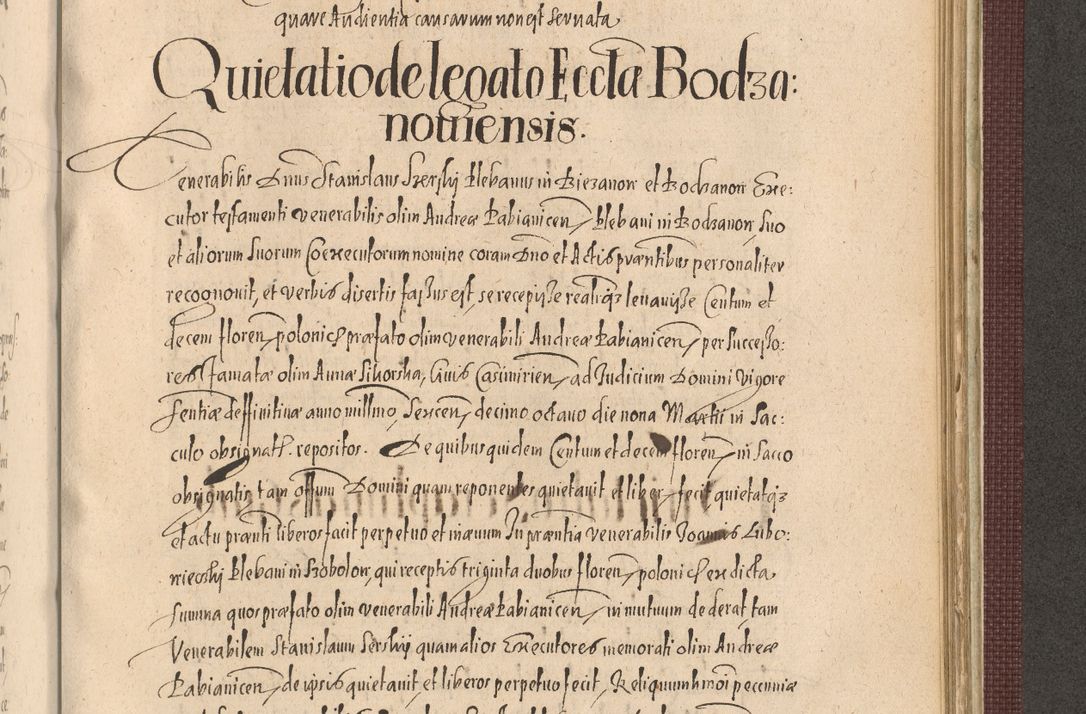 quare Audientia causarum non est servata
Quietatio de legato Eccłæ Bodza:
noviensis.
Venerabilis Dnus Stanislaus Szerszij Plebanus in Biezanow et Bodzanow Exe:
cutor testamenti venerabilis olim Andreæ Pabianicen, Plebani in Bodzanow suo
et aliorum suorum Coexecutorum nomine coram Dno et Actis præntibus personaliter
recognovit, et verbis disertis fassus est, se recepisse realitqz levavisse Centum et
decem floren polonicł præfato olim venerabili Andreæ Pabianicen, per successo:
res famatæ olim Annæ Sikorska, Civis Casimirien, ad Iudicium Domini vigore
sentiæ deffinitivæ anno millmo, sexcen, decimo octavo die nona Martii in sac:
culo obsignatł. repositos. De quibus quidem Centum et decem floren, in sacco
obsignatis, tam offum Domini quam reponentes quietavit et liber fecit quietatqz
et actu prænti liberos facit perpetuo et in ævum In præntia venerabilis Joannis Libo:
Plebani in qui receptis triginta duobus floren, polonicł ex dicta
summa quos præfato olim venerabili Andreæ Pabianicen, in mutuum dederat tam
Venerabilem Stanislaum Serskij quam alios Executores memorati olim Andreæ
Pabianicen, de ipsis quietavit, et liberos perpetuo fecit, Reliquum hmoi pecuniæ